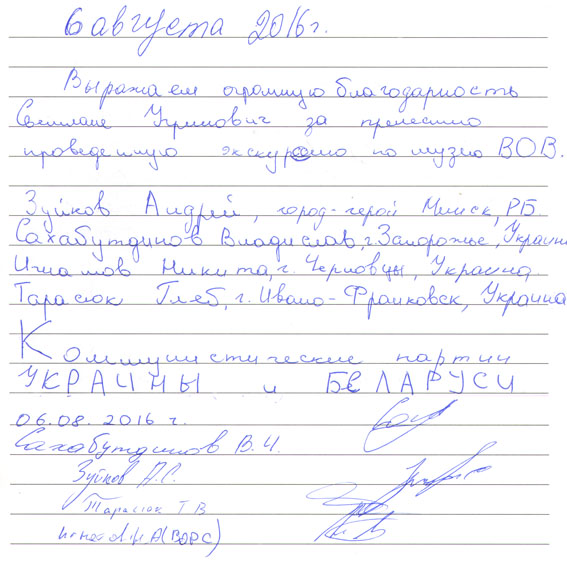 6 августа 2016 г.
Выражаем огромную благодарность
Светлане за прелестно
проведенную экскурсию по музею ВОВ.
Зуйков Андрей, город-герой Минск, РБ
Сахабутдинов Владислав, г. Запорожье, Украина
Игнатов Никита, г. Черновцы, Украина
Тарасюк Глеб, г. Ивано-Франковск, Украина
Коммунистические партии
УКРАИНЫ и БЕЛАРУСИ
06.08.2016 г.
Сахабутдинов В.И.
Зуйков А.С.
Тарасюк Г В